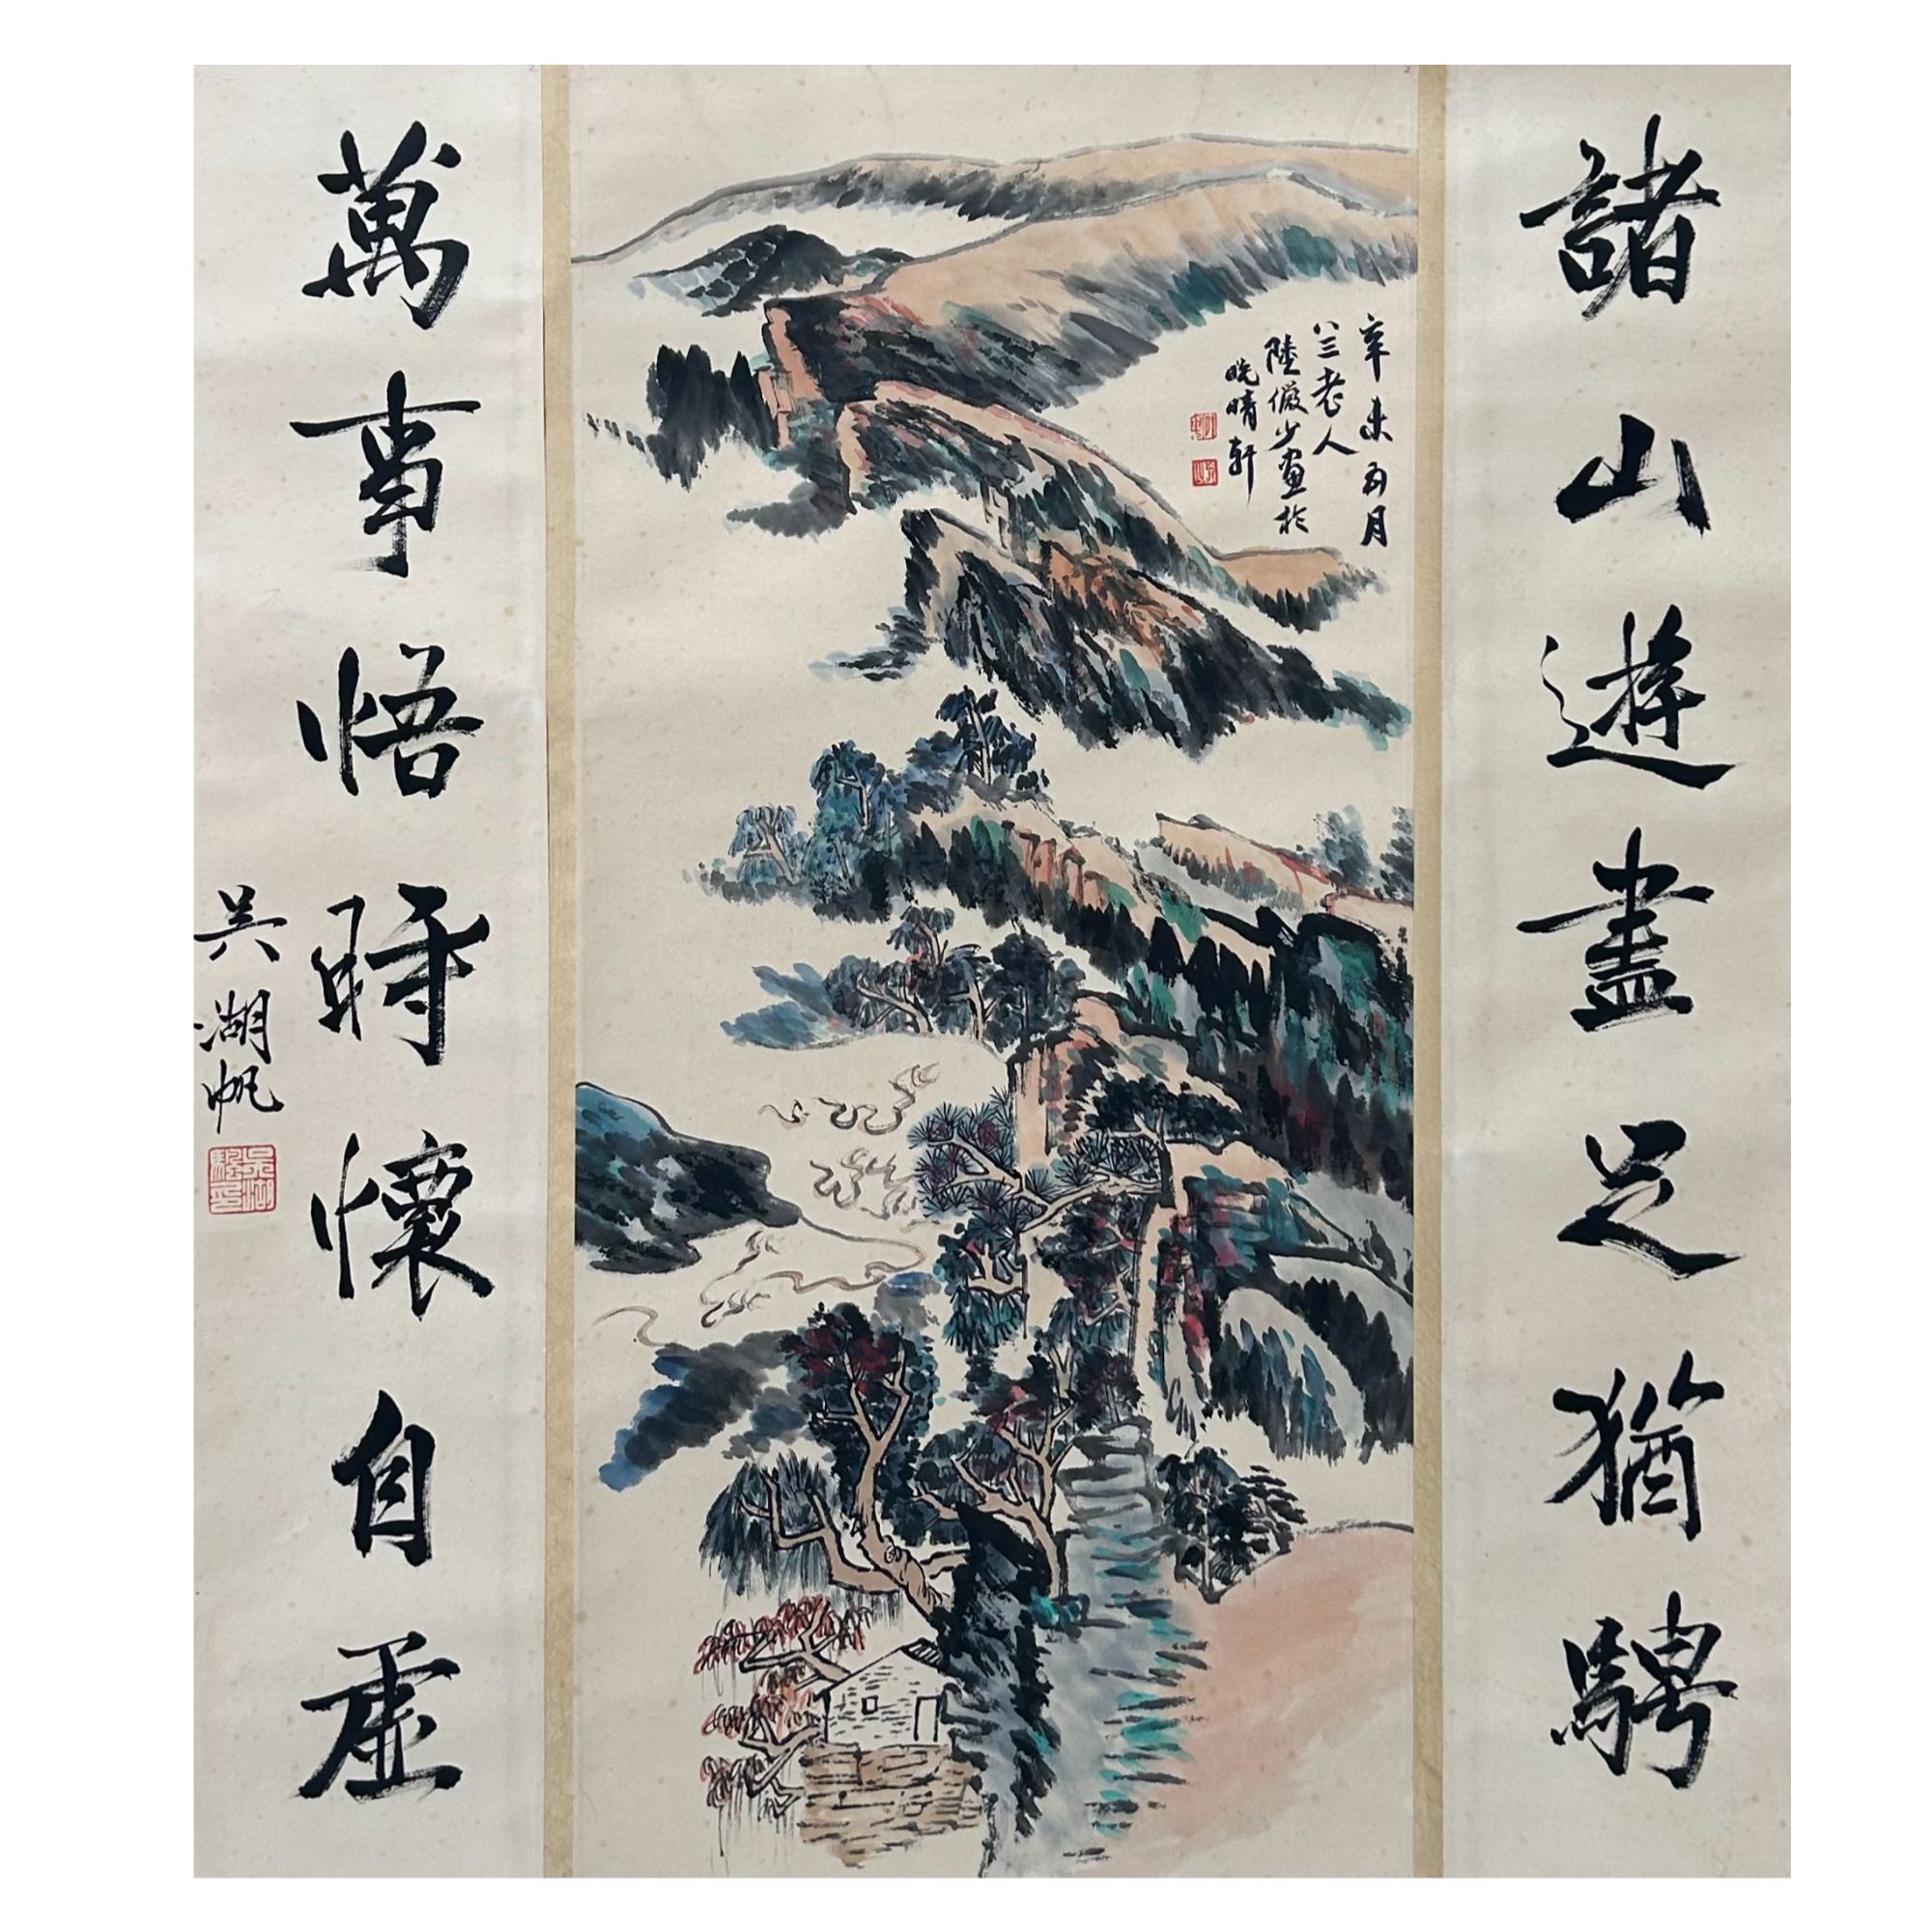 諸山遊盡足猶騁
辛未五月
八三老人
陸儼少畫於
晚晴軒
萬事悟時懷自虛
吳湖帆